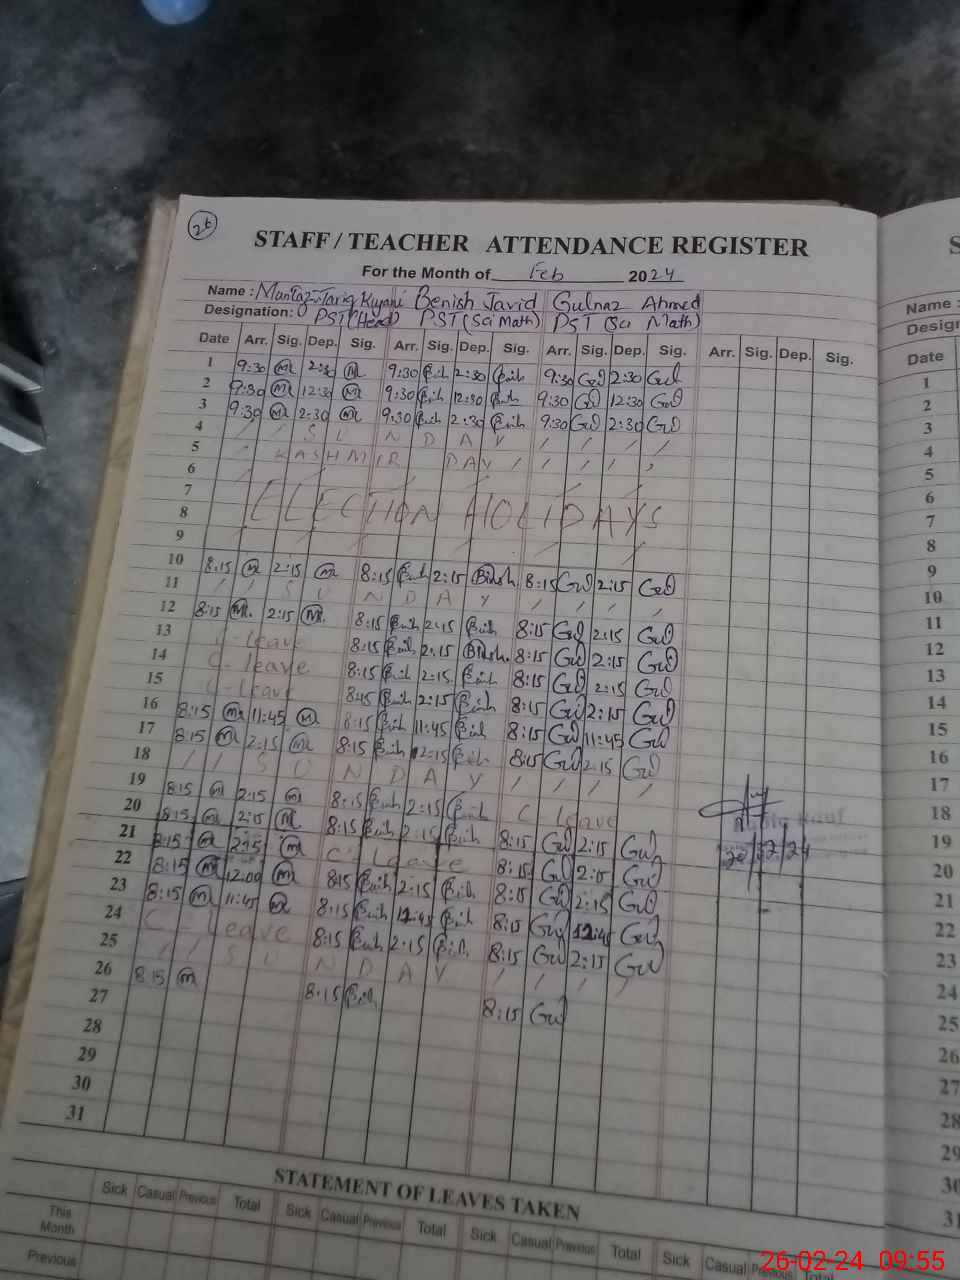 26
STAFF / TEACHER ATTENDANCE REGISTER
For the Month of Feb 2024
Name : Mumtaz Tariq Kyani Benish Javid Gulnaz Ahmed
Designation: PST (Head) PST (Sci Math) PST (Sci Math)
Date Arr. Sig. Dep. Sig. Arr. Sig. Dep. Sig. Arr. Sig. Dep. Sig. Arr. Sig. Dep. Sig.
1 9:30 2:30 9:30 2:30 9:30 Gul 2:30 Gul
2 9:30 12:30 9:30 12:30 9:30 Gul 12:30 Gul
3 9:30 2:30 9:30 2:30 9:30 Gul 2:30 Gul
4 / / S U N D A Y / / / /
5 KASHMIR DAY / / / / /
6
7
8 ELECTION HOLIDAYS
9
10 8:15 2:15 8:15 2:15 8:15 Gul 2:15 Gul
11 / / S U N D A Y / / / /
12 8:15 2:15 8:15 2:15 8:15 Gul 2:15 Gul
13 C-leave 8:15 2:15 8:15 Gul 2:15 Gul
14 C-leave 8:15 2:15 8:15 Gul 2:15 Gul
15 C-leave 8:15 2:15 8:15 Gul 2:15 Gul
16 8:15 11:45 8:15 11:45 8:15 Gul 11:45 Gul
17 8:15 2:15 8:15 2:15 8:15 Gul 2:15 Gul
18 / / S U N D A Y / / / /
19 8:15 2:15 8:15 2:15 C-leave
20 8:15 2:15 8:15 2:15 8:15 Gul 2:15 Gul
21 8:15 2:15 C-leave 8:15 Gul 2:15 Gul
22 8:15 12:00 8:15 2:15 8:15 Gul 2:15 Gul
23 8:15 11:45 8:15 12:45 8:15 Gul 12:45 Gul
24 C-leave 8:15 2:15 8:15 Gul 2:15 Gul
25 / / S U N D A Y / / / /
26 8:15 8:15 8:15 Gul
27
28
29
30
31
STATEMENT OF LEAVES TAKEN
Sick Casual Previous Total Sick Casual Previous Total Sick Casual Previous Total Sick Casual Previous Total
This Month
Previous
S
Name :
Design
Date
1
2
3
4
5
6
7
8
9
10
11
12
13
14
15
16
17
18
19
20
21
22
23
24
25
26
27
28
29
30
31
26-02-24 09:55